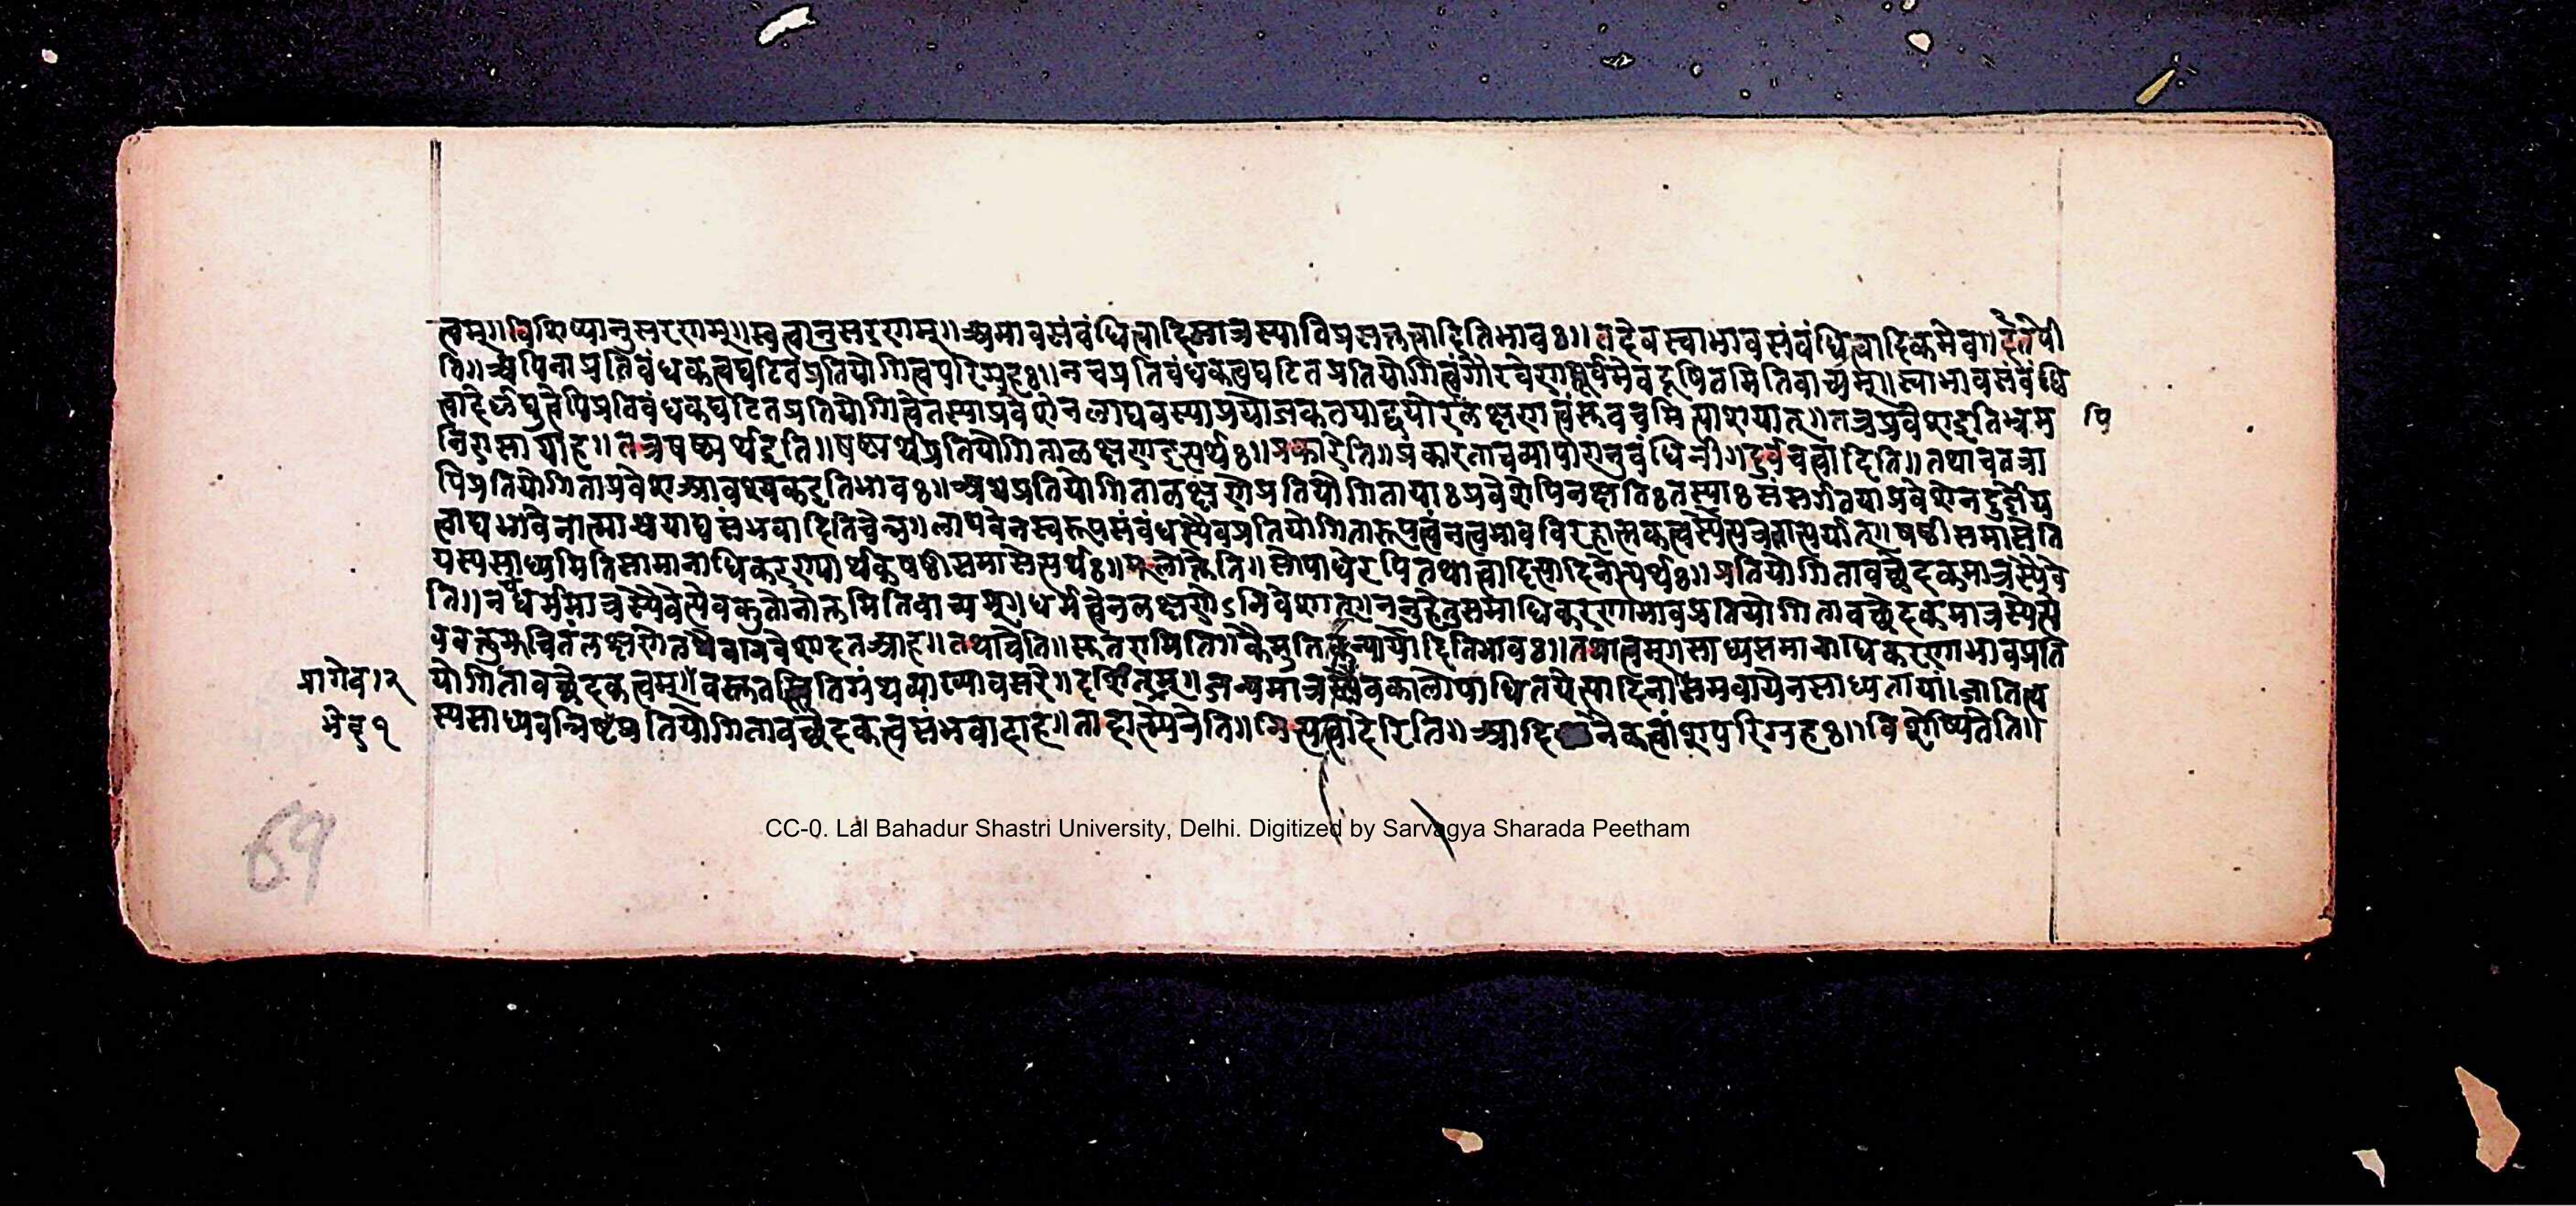 त्वम्॥विशिष्यानुसरणम्॥स्वत्वानुसरणम्॥अभावसंबंधित्वादिमात्रस्यातिप्रसक्तत्वादितिभावः॥तदेवस्वाभावसंबंधित्वादिकमेव॥
ति॥रूपेिनाप्रतिबंधकत्वघटितप्रतियोगित्वपरिग्रहः॥नचप्रतिबंधकत्वघटितप्रतियोगित्वंगौरवेणपूर्वमेवदूषितमितिवाच्यम्॥स्वाभावसंबंधि
त्वादेर्लघुत्वेपिप्रतिबंधकघटितप्रतियोगित्वेतस्याप्रवेशेनलाघवस्याप्रयोजकतयाद्वयोरलक्षणत्वंस्तवत्वमित्याशयात्॥तत्रप्रवेशइतिभ्रम पि
निरासायाह॥तत्रषष्ठ्यर्थइति॥षष्ठ्यर्थप्रतियोगितालक्षणइत्यर्थः॥प्रकारेति॥प्रकारताचव्यापारानुबंधिनी॥दुर्वचत्वादिति॥तथाचतत्रा
पिप्रतियोगिताप्रवेशआवश्यकइतिभावः॥अथप्रतियोगितालक्षणेप्रतियोगितायाःप्रवेशेपिनक्षतिःतस्याःसंसर्गतयाप्रवेशेनदुर्ज्ञेय
त्वाद्यभावेनात्माश्रयाद्यसंभवादितिचेन्न॥लाघवेनस्वरूपसंबंधस्यैवप्रतियोगितारूपत्वंनत्वभावविरहात्मकत्वस्येत्यत्रतात्पर्यात्॥षष्ठीसमासेति
यस्यसाध्यमितिसामानाधिकरण्यार्थकषष्ठीसमासेत्यर्थः॥मूलोक्तेति॥सोपाधेरपितथात्वादित्यादिनेत्यर्थः॥प्रतियोगितावच्छेदकमात्रस्यैवे
ति॥नचधर्ममात्रस्यैवेत्येवकुतोनोक्तमितिवाच्यम्॥धर्मत्वेनलक्षणेऽनिवेशात्॥ननुहेतुसमाधिकरणाभावप्रतियोगितावच्छेदकमात्रस्यैत
वक्तुमुचितंलक्षणेतथैवप्रवेशादतआह॥तथाचेति॥सुतरामिति॥कैमुतिकन्यायादितिभावः॥तथात्वम्॥साध्यसमानाधिकरणाभावप्रति
प्रागेव।२ योगितावच्छेदकत्वम्॥वस्तुतस्त्वितिग्रंथव्याख्यावसरे॥दर्शितम्॥जन्यमात्रस्यैवकालोपाधितयेत्यादिना॥समवायेनसाध्यतायां।जातित्व
मेव१ स्यसाध्यवन्निष्ठप्रतियोगितावच्छेदकत्वसंभवादाह॥तादात्म्येनेति॥नित्यत्वादेरिति॥आदिनैकत्वांशपरिग्रहः॥विशेष्यितेति॥
69
CC-0. Lal Bahadur Shastri University, Delhi. Digitized by Sarvagya Sharada Peetham